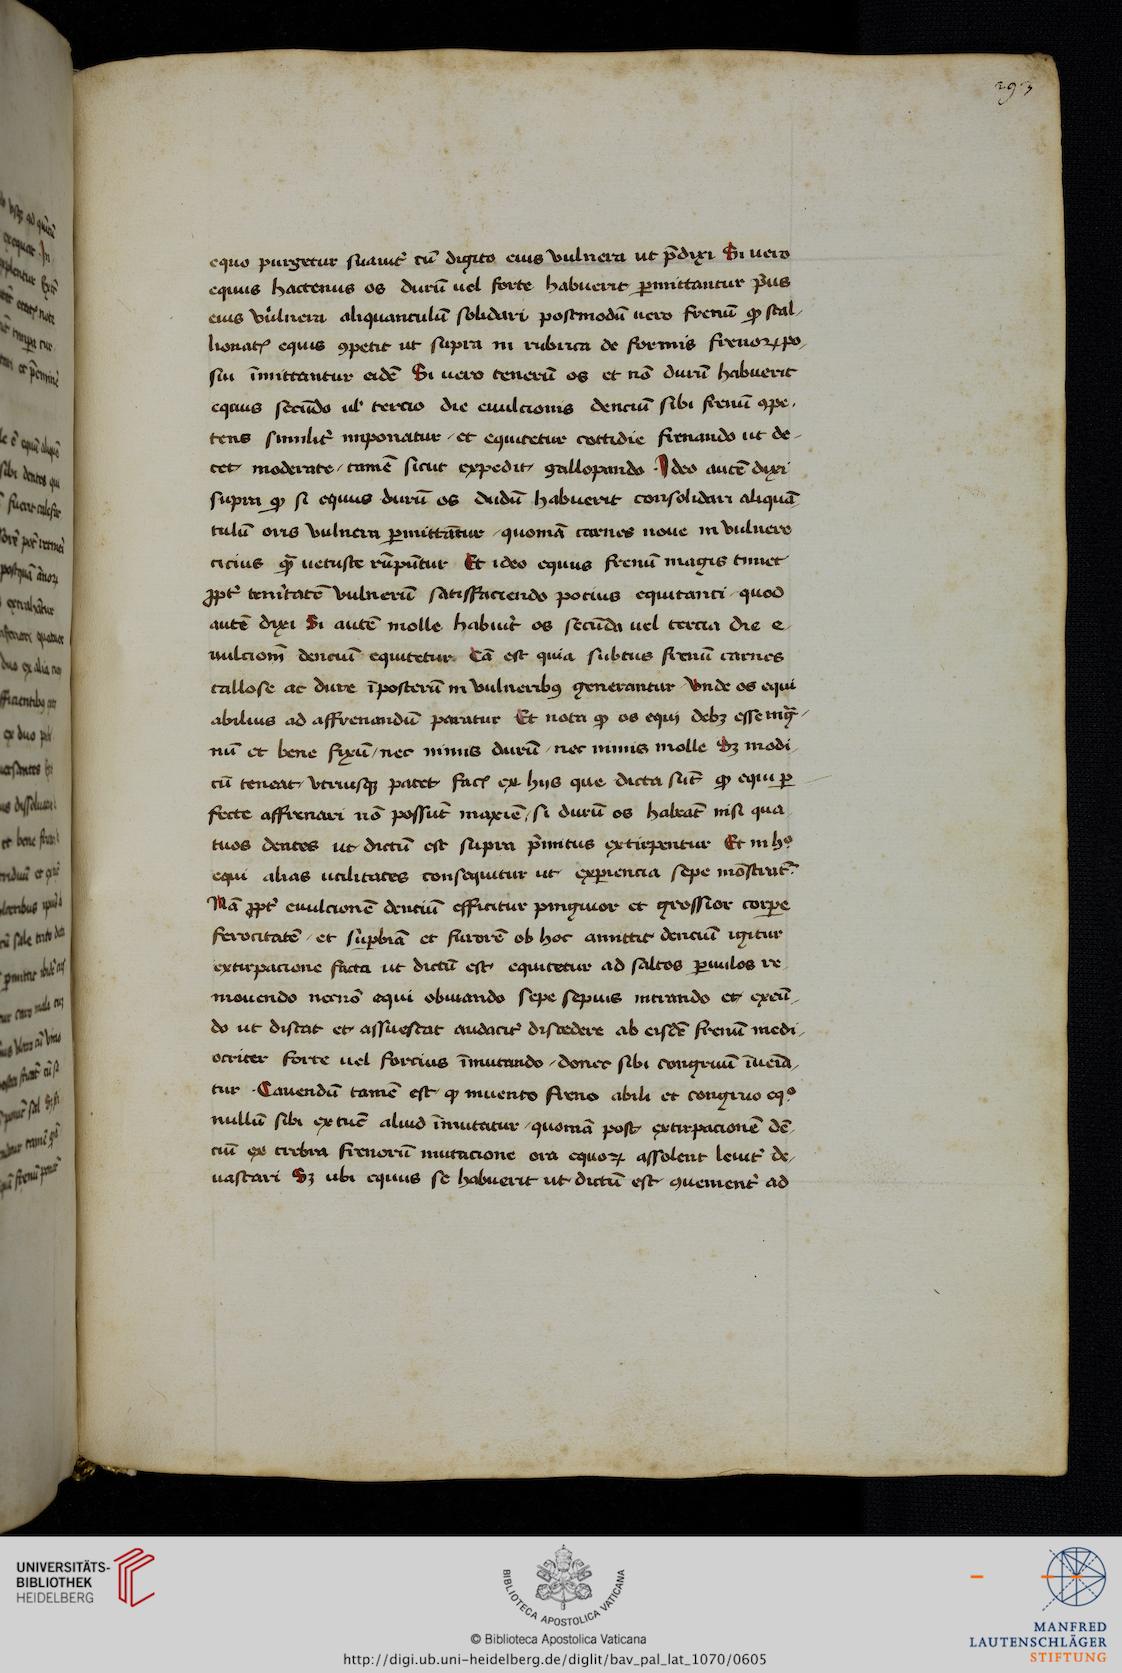 293
equo purgetur suauit᷑ cū digito eius vulnera ut p̄dixi Si vero
equus hactenus os durū uel forte habuerit ꝑmittantur p᷑us
eius vulnera aliquantulū solidari postmodū uero frenū ꝙ
equus ꝯpetit ut supra in rubrica de formis frenoꝝ po⸗
sui īmittantur eidē Si uero tenerū os et nō durū habuerit
equus secūdo ul᷑ tercio die euulcionis denciū sibi frenū ꝯpe⸗
tens similit᷑ imponatur et equitetur cottidie firnando ut de⸗
cet moderate tamē sicut expedit gallopando Ideo autē dixi
supra ꝙ si equus durū os dudū habuerit consolidari aliquā
tulū oris vulnera ꝑmittātur quoniā carnes noue in vulnere
cicius ꝙ̄ uetuste rūpūtur Et ideo equus frenū magis timet
ꝓpt᷑ tenitatē vulnerū satisfaciendo pocius equitanti quod
autē dixi Si autē molle habuit᷑ os secūda uel tercia die e⸗
uulciom̄ denciū equitetur Cā est quia subtus frenū carnes
callose ac dure īposterū in vulneribꝯ generantur vnde os equi
abilius ad affrenandū paratur Et nota ꝙ os equi debꝫ esse mg̅⸗
nū et bene fixū nec nimis durū nec nimis molle Sꝫ modi⸗
cū teneat vtriusqꝫ patet fac᷑ ex hijs que dicta sūt ꝙ equi ꝑ
fecte affrenari nō possūt maxīe si durū os habeāt nisi qua
tuos dentes ut dictū est supra p᷑mitus extirpentur Et in hº
equi alias utilitates consequitur ut exꝑiencia sepe mōstrat᷑
Nā ꝓpt᷑ euulcionē denciū efficitur pinguior et grossior corꝑe
ferocitatē et suꝑbiā et furorē ob hoc amittit denciū igitur
extirpacione facta ut dictū est equitetur ad saltos ꝑuulos re
mouendo necnō equi obuiando sepe sepius intrando et exeū⸗
do ut discat et assuescat audacit᷑ discedere ab eisdē frenū medi⸗
ocriter forte uel forcius īmutando donec sibi congruū īueīa⸗
tur Cauendū tamē est ꝙ inuento freno abili et congruo eqº
nullū sibi extūc aliud īmutatur quoniā post extirpacionē dē⸗
ciū ex crebra frenorū mutacione ora equoꝝ assolent leuit᷑ de⸗
uastari Sꝫ ubi equus se habuerit ut dictū est ꝯuenient᷑ ad
UNIVERSITÄTS-
BIBLIOTHEK
HEIDELBERG
BIBLIOTECA APOSTOLICA VATICANA
© Biblioteca Apostolica Vaticana
http://digi.ub.uni-heidelberg.de/diglit/bav_pal_lat_1070/0605
MANFRED
LAUTENSCHLÄGER
STIFTUNG